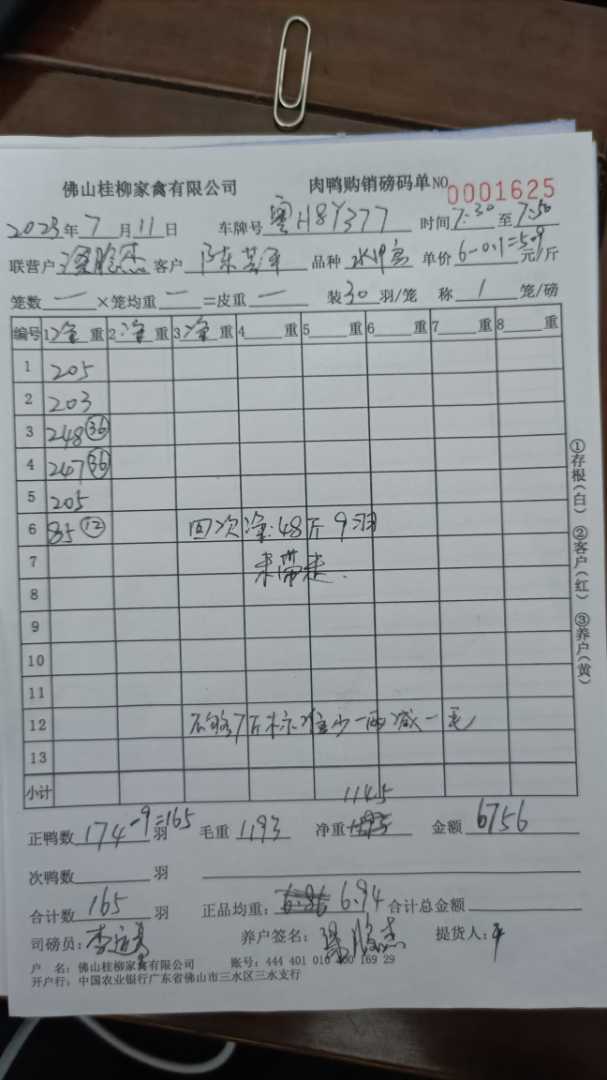 佛山桂柳家禽有限公司 肉鸭购销磅码单 NO 0001625
2023年7月11日 车牌号 粤H8Y377 时间 7:30 至 7:50
联营户 客户 陈 品种 单价 6-0.1=5.9 元/斤
笼数 一 ×笼均重 一 =皮重 一 装 30 羽/笼 称 1 笼/磅
编号 1 净 重 2 净 重 3 净 重 4 重 5 重 6 重 7 重 8 重
1 205
2 203
3 248 (36)
4 247 (36)
5 205
6 85 (12) 回次净:48斤9羽
7 未带走.
8
9
10
11
12 不够7斤标准少一两减一毛
13
小计
1145
正鸭数 174-9=165 羽 毛重 1193 净重 金额 6756
次鸭数 羽
合计数 165 羽 正品均重: 6.94 合计总金额
司磅员: 李 养户签名: 杰 提货人:
户 名: 佛山桂柳家禽有限公司 账号: 444 401 010 169 29
开户行: 中国农业银行广东省佛山市三水区三水支行
①存根(白) ②客户(红) ③养户(黄)